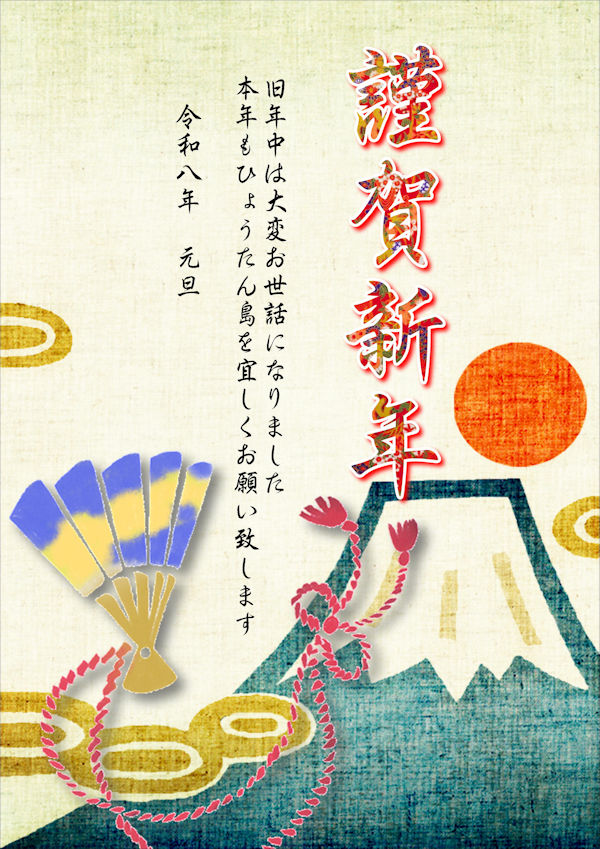 謹賀新年
旧年中は大変お世話になりました
本年もひょうたん島を宜しくお願い致します
令和八年　元旦